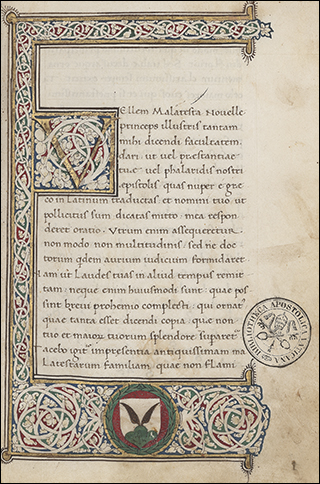 Vellem Malatesta Nouelle
princeps illustris tantam
mihi dicendi facultatem
dari ut vel prestantiae
tuę vel phalaridis nostri
epistolis quas nuper e gre
co in Latinum traductas et nomini tuo ut
pollicitus sum dicatas mitto mea respon
deret oratio. Vtrum enim assequeretur
non modo non multitudinis sed ne doc
torum qdem aurium iudicium formidaret
Iam ut Laudes tuas in aliud tempus remit
tam: neque enim huiusmodi sunt quae pos
sint breui prohemio complecti. qui ornat9
quae tanta esset dicendi copia quae non
tuo et maioꝝ tuorum splendore suparet᷑
Tacebo igit᷑ impresentia antiquissimam ma
Latestarum familiam quae non flami
BIBLIOTHECA APOSTOLICA VATICANA